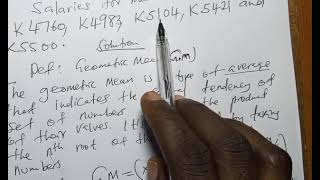 Salaries for
K4760, K4983, K5104, K5421 and
K5500.
Solution
Def: Geometric Mean (Gm)
The geometric mean is the average
that indicates the tendency of
set of numbers the product
of their values. by taking
the nth root of the
numbers
GM = (x